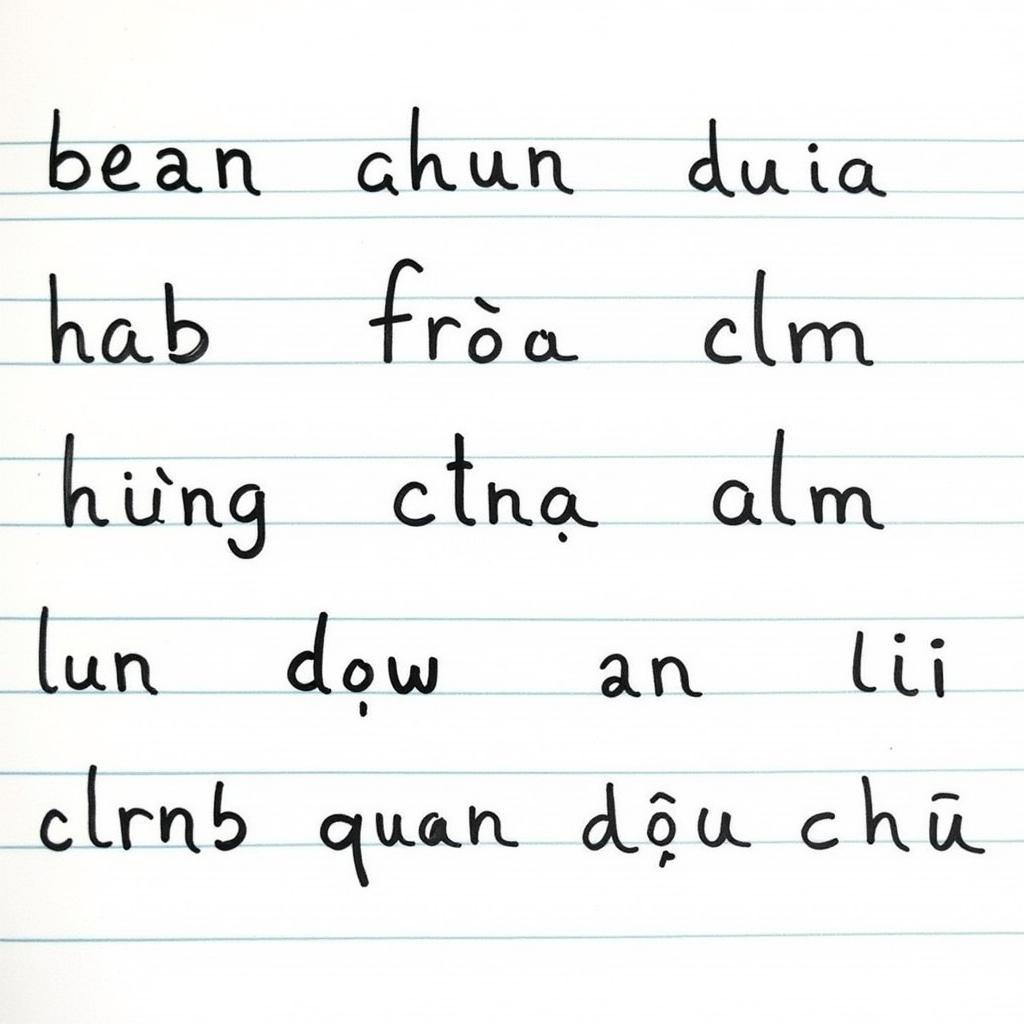 bean ahun duia
hab fròa clm
hiùng ctnạ alm
lun dọw an lii
clrnb quan dộu chū